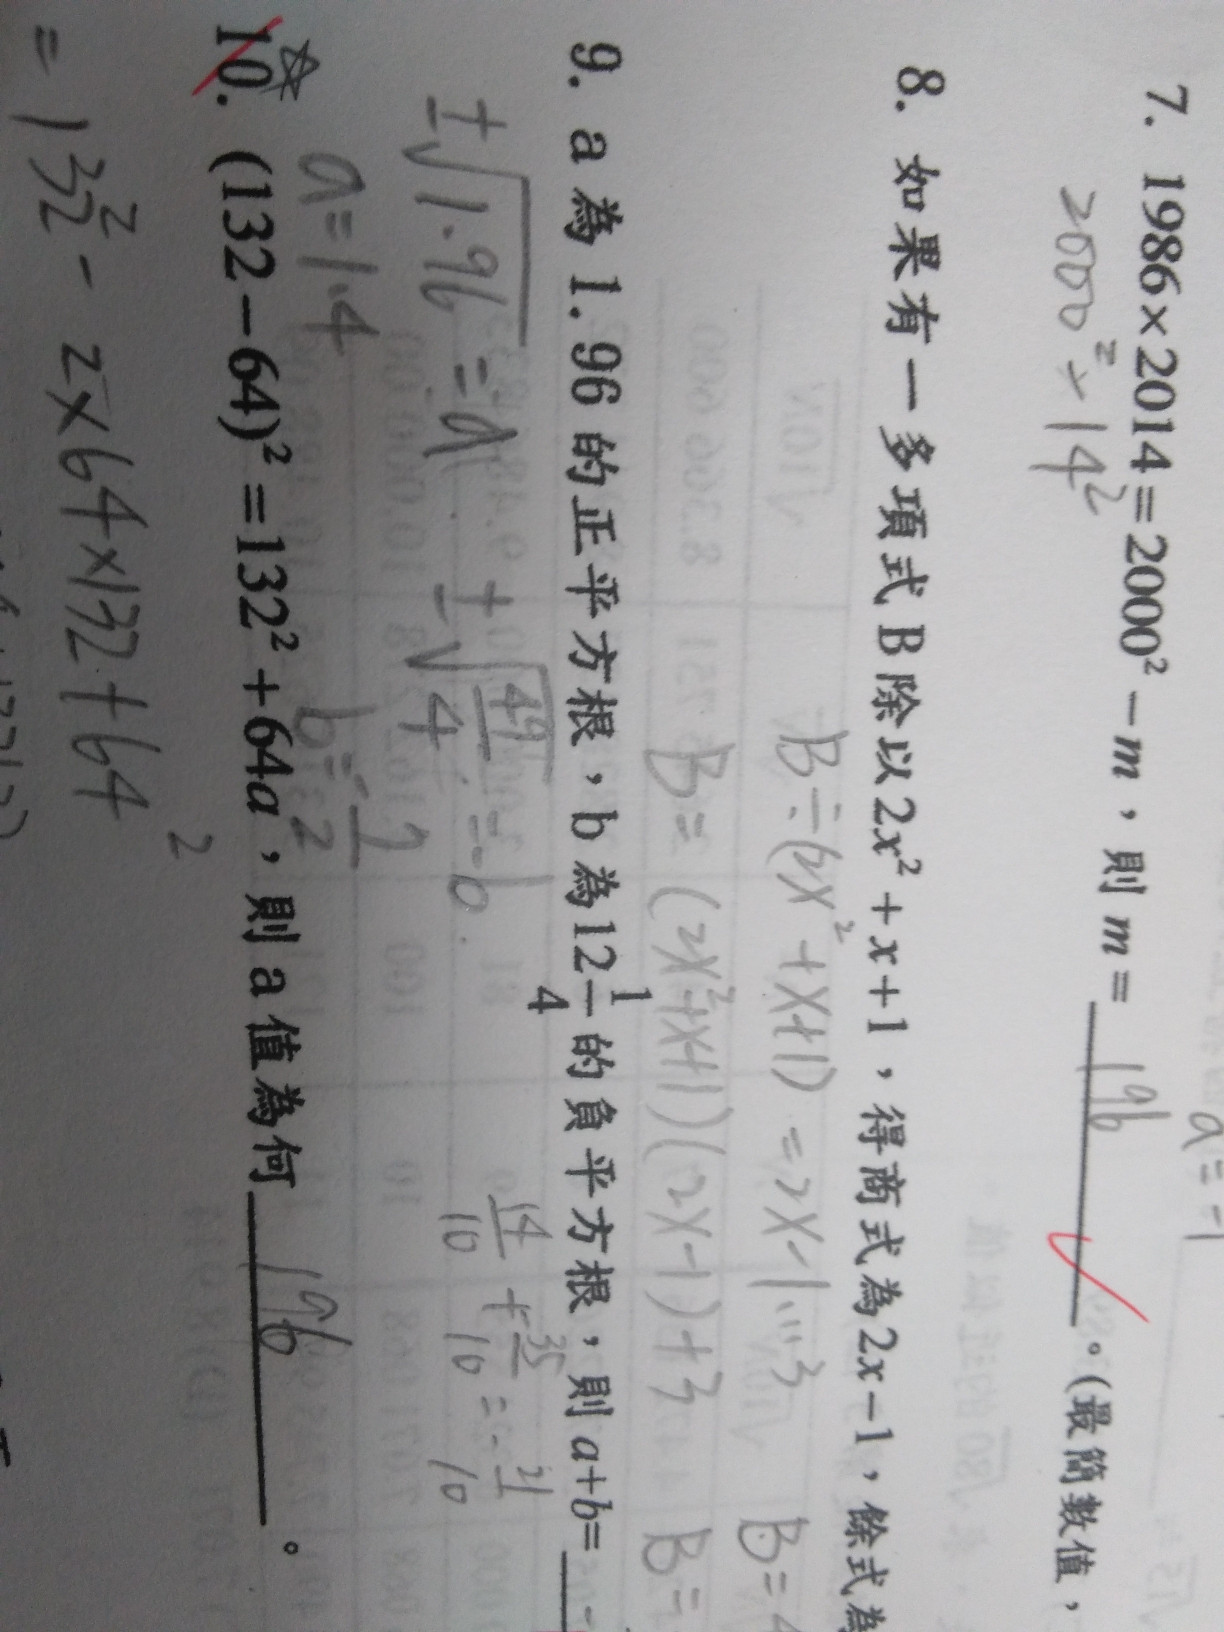 a=-1
7. 1986×2014=2000²-m,則 m= 196 。(最簡數值,
2000² × 14²
8. 如果有一多項式 B 除以 2x²+x+1,得商式為 2x-1,餘式為
B÷(2x²+x+1)=2x-1…3
B=4
B=(2x²+x+1)(2x-1)+3
B=
9. a 為 1.96 的正平方根,b 為 12 1/4 的負平方根,則 a+b=
±√1.96=a
±√49/4=b
14/10 + 35/10 = -21/10
a=1.4
b=-7/2
☆
10. (132-64)²=132²+64a,則 a 值為何 196 。
=132²-2×64×132+64²